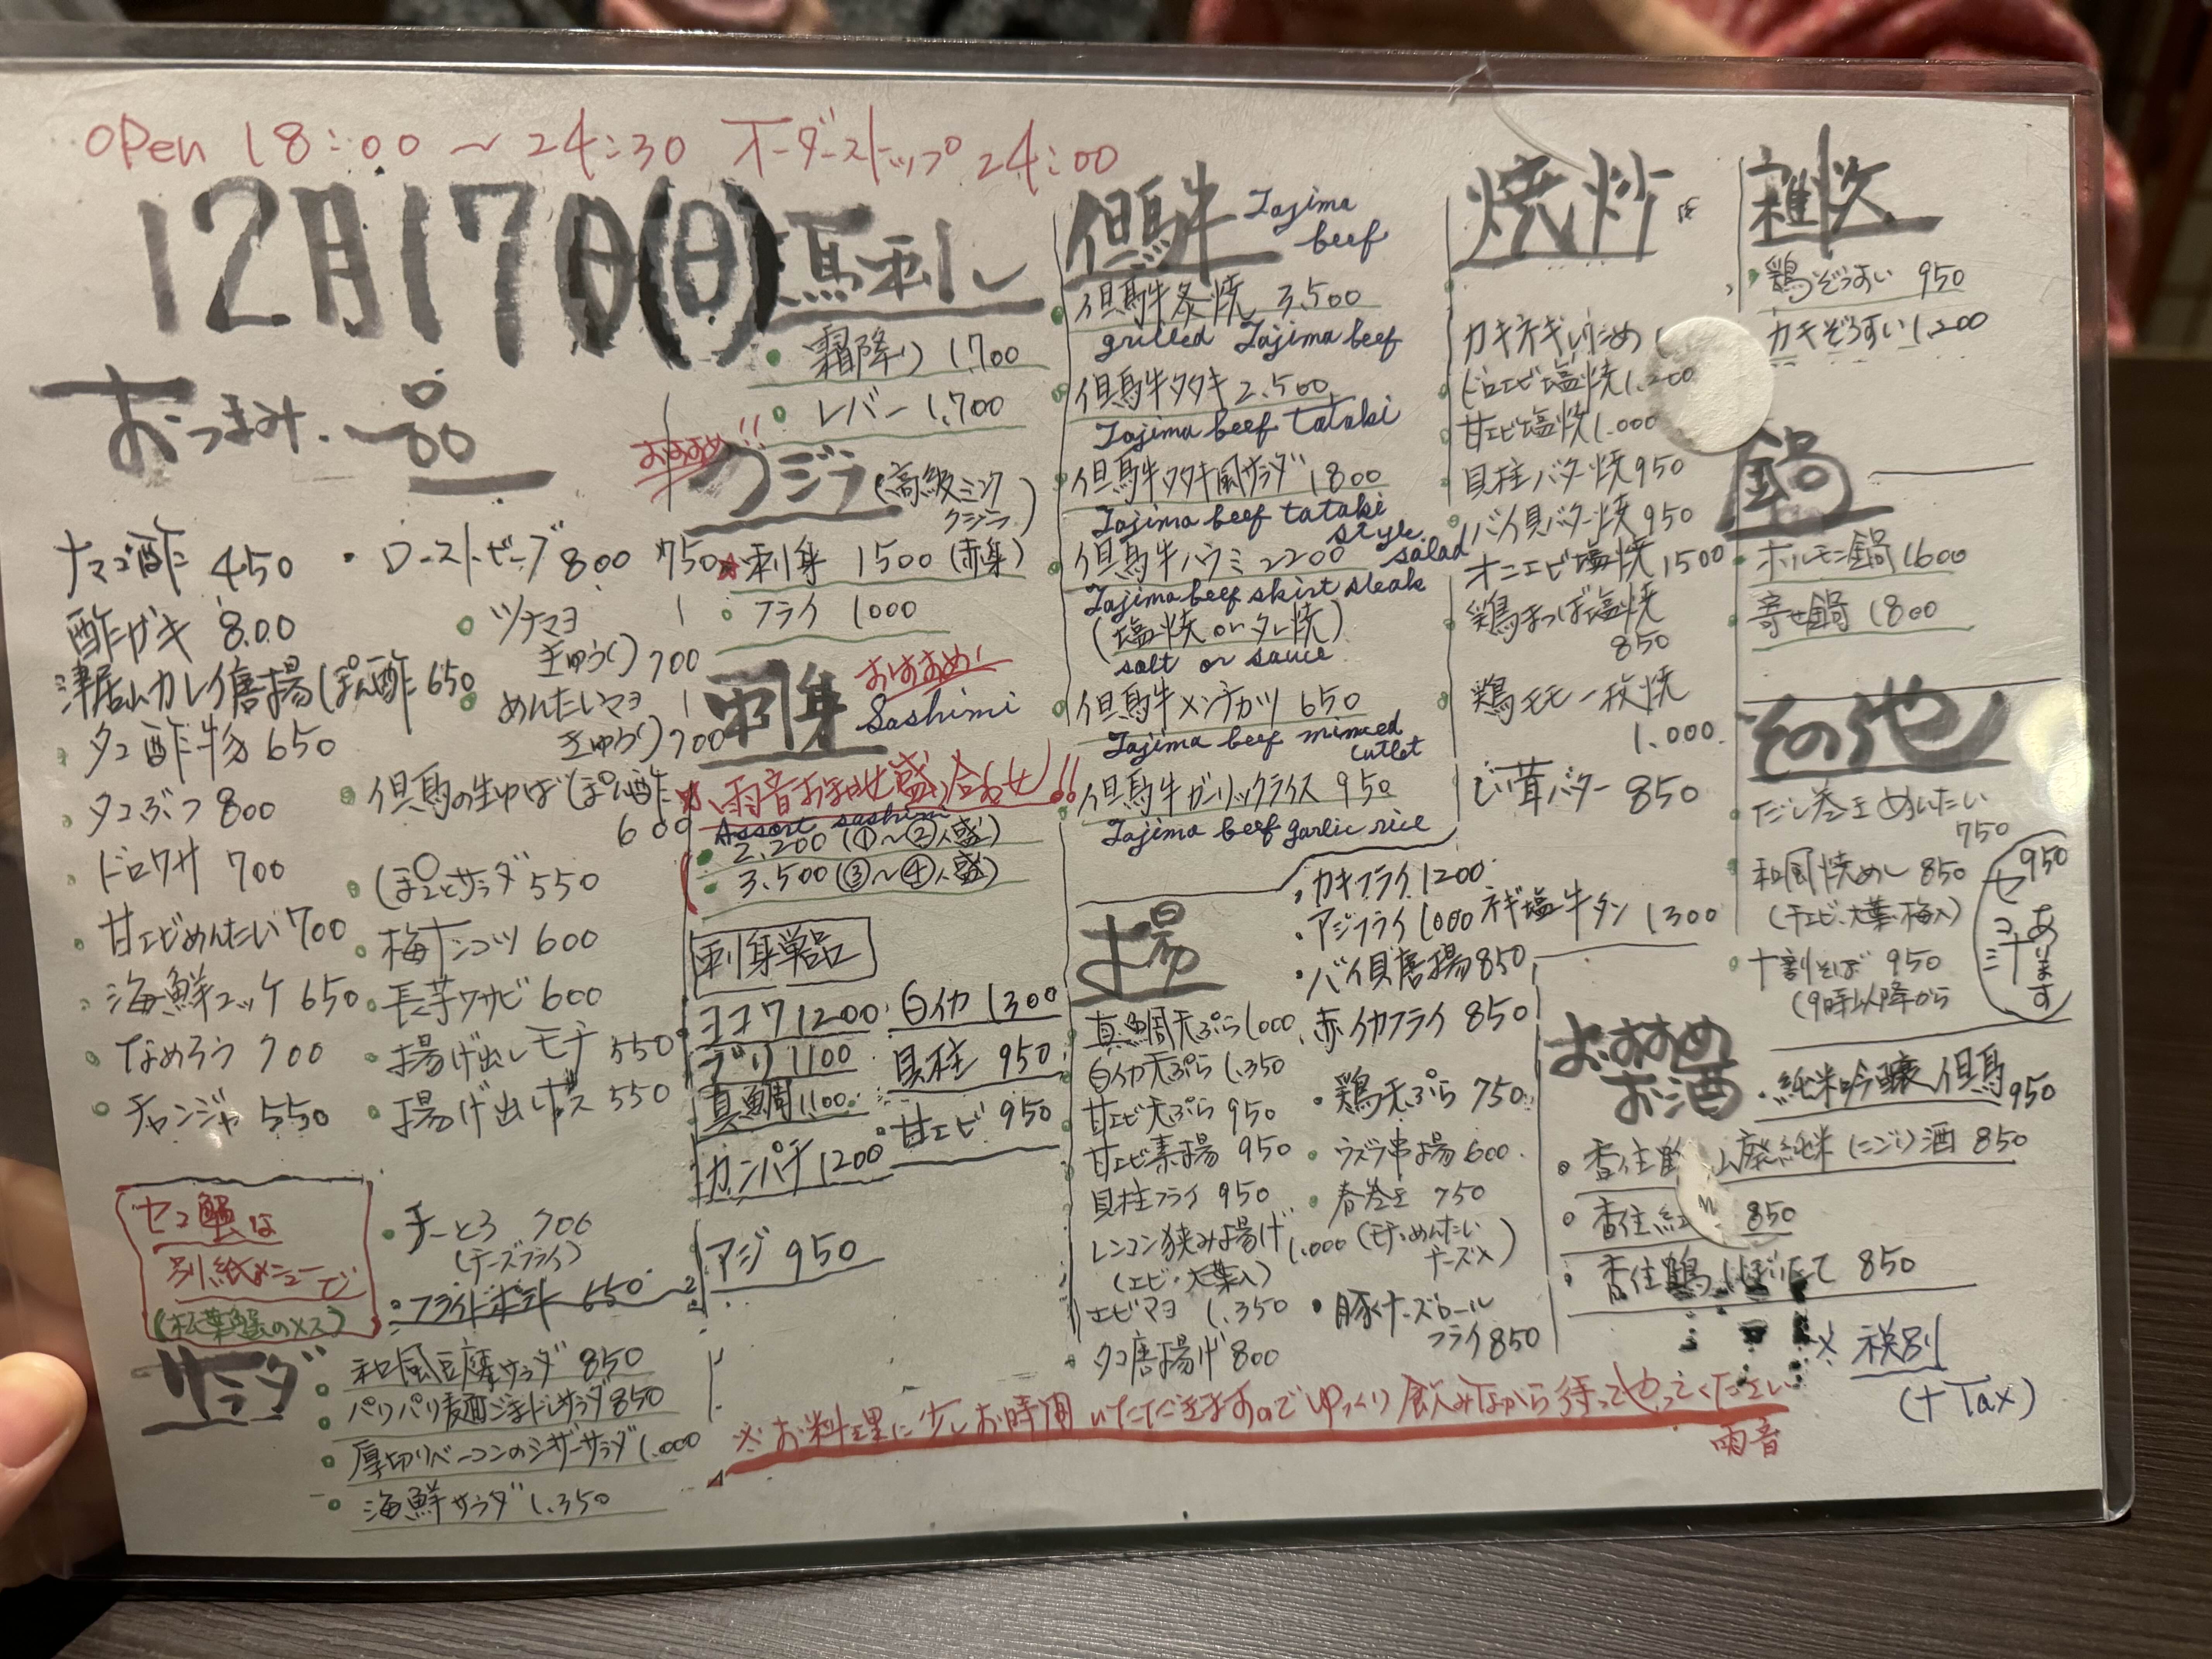 open 18:00～24:30 オーダーストップ 24:00
12月17日(日)
おつまみ・一品
ナマコ酢 450
酢ガキ 800
津居山カレイ唐揚ぽん酢 650
タコ酢物 650
タコぶつ 800
ドロワサ 700
甘エビめんたい 700
海鮮ユッケ 650
なめろう 700
チャンジャ 550
ローストビーフ 800
750
ツナマヨ
きゅうり 700
めんたいマヨ
きゅうり 700
但馬の生ゆばぽん酢
600
ぽてとサラダ 550
梅ナンコツ 600
長芋ワサビ 600
揚げ出しモチ 550
揚げ出しナス 550
セコ蟹は
別紙メニューで
(松葉蟹のメス)
チーとろ 700
(チーズフライ)
フライドポテト 550
サラダ
和風豆腐サラダ 850
パリパリ麺ごまドレサラダ 850
厚切りベーコンのシーザーサラダ 1.000
海鮮サラダ 1.350
馬刺し
霜降り 1.700
レバー 1.700
おすすめ!!
クジラ (高級ミンククジラ)
刺身 1500 (赤身)
フライ 1000
刺身
おすすめ!
Sashimi
雨音おまかせ盛り合わせ!!
Assort sashimi
2.200 (①～②人盛)
3.500 (③～④人盛)
刺身単品
ヨコワ 1200
ブリ 1100
真鯛 1100
カンパチ 1200
アジ 950
白イカ 1300
貝柱 950
甘エビ 950
但馬牛 Tajima beef
但馬牛炙焼 3.500
grilled Tajima beef
但馬牛タタキ 2.500
Tajima beef tataki
但馬牛タタキ風サラダ 1800
Tajima beef tataki style salad
但馬牛ハラミ 2200
Tajima beef skirt steak
(塩焼 or タレ焼)
salt or sauce
但馬牛メンチカツ 650
Tajima beef minced cutlet
但馬牛ガーリックライス 950
Tajima beef garlic rice
揚
真鯛天ぷら 1.000
白イカ天ぷら 1.350
甘エビ天ぷら 950
甘エビ素揚 950
貝柱フライ 950
レンコン狭み揚げ 1.000
(エビ・大葉入)
エビマヨ 1.350
タコ唐揚げ 800
カキフライ 1200
アジフライ 1000
バイ貝唐揚 850
赤イカフライ 850
鶏天ぷら 750
ウズラ串揚 600
春巻き 750
(モチ・めんたい
チーズ入)
豚くチーズロール
フライ 850
焼炒
カキネギいため
ドロエビ塩焼 1.200
甘エビ塩焼 1.000
貝柱バター焼 950
バイ貝バター焼 950
オニエビ塩焼 1500
鶏まつば塩焼
850
鶏モモ一枚焼
1.000
しい茸バター 850
ネギ塩牛タン 1300
雑炊
鶏ぞうすい 950
カキぞうすい 1.200
鍋
ホルモン鍋 1600
寄せ鍋 1800
その他
だし巻きめんたい
750
和風焼めし 850
(干エビ・大葉・梅入)
十割そば 950
(9時以降から
950
セコ汁
あります
おすすめ
お酒
純米吟醸 但馬 950
香住鶴 山廃純米 にごり酒 850
香住 850
香住鶴 しぼりたて 850
※税別
(+Tax)
※お料理に少しお時間いただきますのでゆっくり飲みながら待ってやってください
雨音